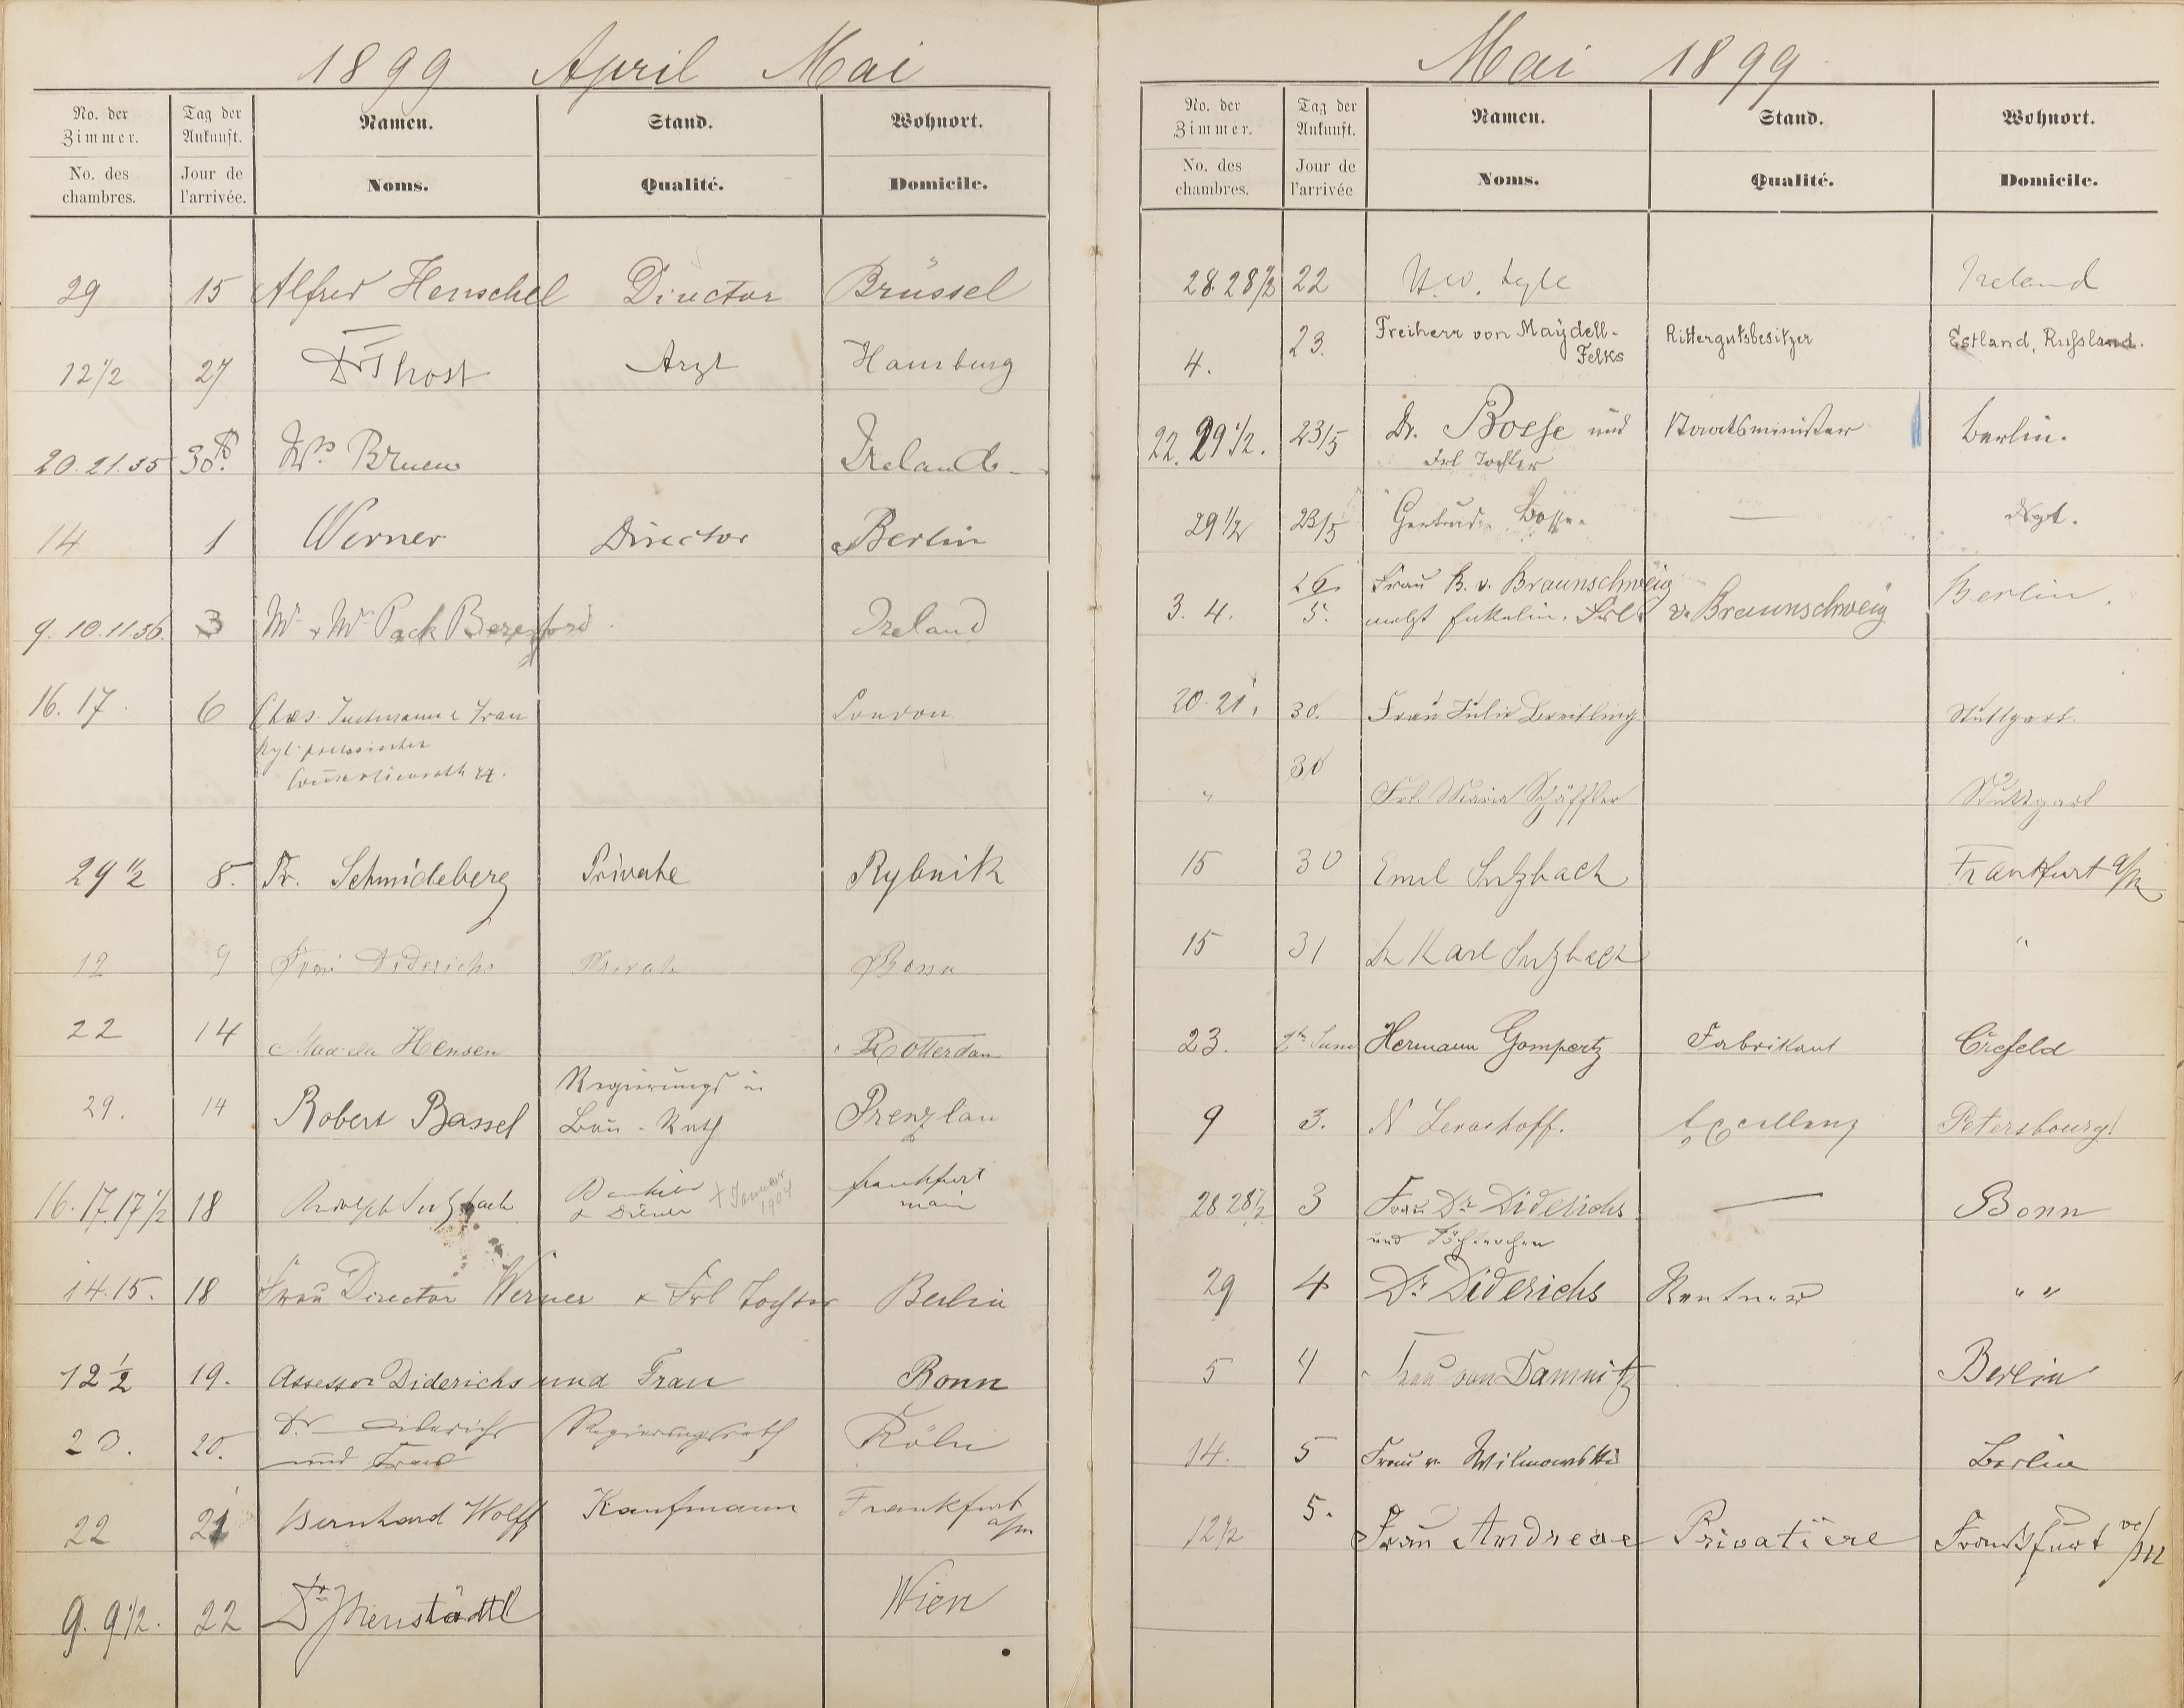 1899 April Mai
No. der Zimmer. Tag der Ankunft. Namen. Stand. Wohnort.
No. des chambres. Jour de l'arrivée. Noms. Qualité. Domicile.
29 15 Alfred Henschel Director Brüssel
12 1/2 27 Dr Thost Arzt Hamburg
20. 21. 35 30. Mrs Bruen Ireland
14 1 Werner Director Berlin
9. 10. 11 36. 3 Mr & Mrs Pack Beresford Ireland
16. 17. 6 Chas. & Frau London
Kgl. preussischer
Commerzienrath
29 1/2 8. Fr. Schmideberg Private Rybnik
12 9 Frau Diderichs Private Bonn
22 14 Hensen Rotterdam
29. 14 Robert Bassel Regierungs u
Bau-Rath Prenzlau
16. 17. 17 1/2 18 Rudolph Sulzbach Bankier
& Diener + Januar
1904 frankfurt
main
14. 15. 18 Frau Director Werner & Frl Tochter Berlin
12 1/2 19. Assessor Diderichs und Frau Bonn
20. 20. Dr Diderichs
und Frau Regierungsrath Köln
22 21 Bernhard Wolff Kaufmann Frankfurt
a/m
9. 9 1/2. 22 Dr Wien
Mai 1899
No. der Zimmer. Tag der Ankunft. Namen. Stand. Wohnort.
No. des chambres. Jour de l'arrivée Noms. Qualité. Domicile.
28. 28 1/2 22 Lyle Ireland
4. 23. Freiherr von Maÿdell-
Felks Rittergutsbesitzer Estland, Russland.
22. 29 1/2. 23/5 Dr. Bosse und
Frl Tochter Staatsminister Berlin.
29 1/2 23/5 Gertrud Bosse. — dsgl.
3. 4. 26/5. Frau B. v. Braunschweig
nebst Enkelin. Frl. v. Braunschweig Berlin.
20. 21. 30. Frau Julie Breitling Stuttgart.
" 30 Frl. Maria Schäffler Stuttgart
15 30 Emil Sulzbach Frankfurt a/M
15 31 Dr Karl Sulzbach "
23. 2ten Juni Hermann Gompertz Fabrikant Crefeld
9 3. N Excellenz Petersbourg
28 28 1/2 3 Frau Dr Diderichs
und Töchterchen — Bonn
29 4 Dr Diderichs Rentner " "
5 4 Frau von Damnitz Berlin
14. 5 Frau v. Wilmowski Berlin
12 1/2 5. Frau Andreae Privatière Frankfurt a/M